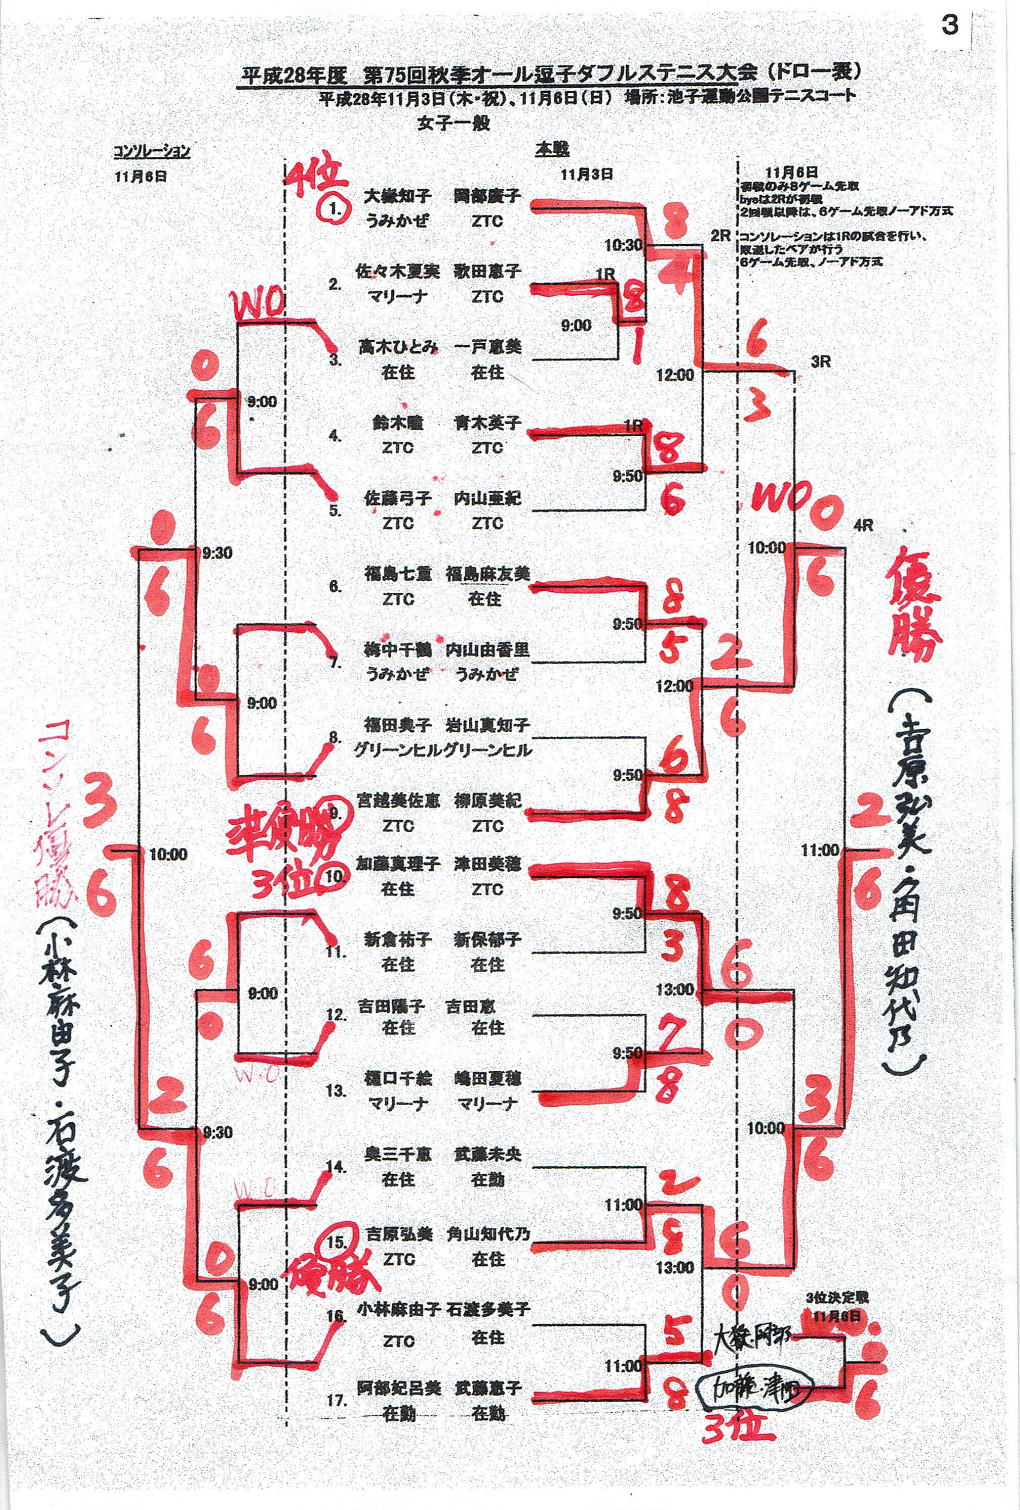 3
平成28年度 第75回秋季オール逗子ダブルステニス大会（ドロー表）
平成28年11月3日(木・祝)、11月6日(日) 場所：池子運動公園テニスコート
女子一般
コンソレーション
11月6日
本戦
11月3日
11月6日
初戦のみ8ゲーム先取
byeは2Rが初戦
2回戦以降は、6ゲーム先取ノーアド方式
コンソレーションは1Rの試合を行い、
敗退したペアが行う
6ゲーム先取、ノーアド方式
4位
1. 大嶽知子 岡部慶子
うみかぜ ZTC
2. 佐々木夏実 歌田恵子
マリーナ ZTC
3. 高木ひとみ 一戸恵美
在住 在住
4. 鈴木瞳 青木英子
ZTC ZTC
5. 佐藤弓子 内山亜紀
ZTC ZTC
6. 福島七重 福島麻友美
ZTC 在住
7. 梅中千鶴 内山由香里
うみかぜ うみかぜ
8. 福田典子 岩山真知子
グリーンヒル グリーンヒル
9. 宮越美佐恵 柳原美紀
ZTC ZTC
準優勝
10. 加藤真理子 津田美穂
在住 ZTC
3位
11. 新倉祐子 新保郁子
在住 在住
12. 吉田陽子 吉田恵
在住 在住
13. 樋口千絵 嶋田夏穂
マリーナ マリーナ
14. 奥三千恵 武藤未央
在住 在勤
15. 吉原弘美 角山知代乃
ZTC 在住
優勝
16. 小林麻由子 石渡多美子
ZTC 在住
17. 阿部妃呂美 武藤恵子
在勤 在勤
1R
9:00
8
1
10:30
8
4
1R
9:50
8
6
9:50
8
5
9:50
6
8
9:50
8
3
9:50
7
8
11:00
2
8
11:00
5
8
2R
12:00
6
3
12:00
2
6
13:00
6
0
13:00
6
0
3R
10:00
WO
0
6
10:00
3
6
4R
11:00
2
6
優勝
(吉原弘美・角田知代乃)
WO
9:00
0
6
9:00
0
6
9:00
6
0
W.O
W.O
9:00
0
6
9:30
0
6
9:30
2
6
10:00
3
6
コンソレ優勝
(小林麻由子・石渡多美子)
3位決定戦
11月6日
大嶽・岡部
加藤・津田
6
3位